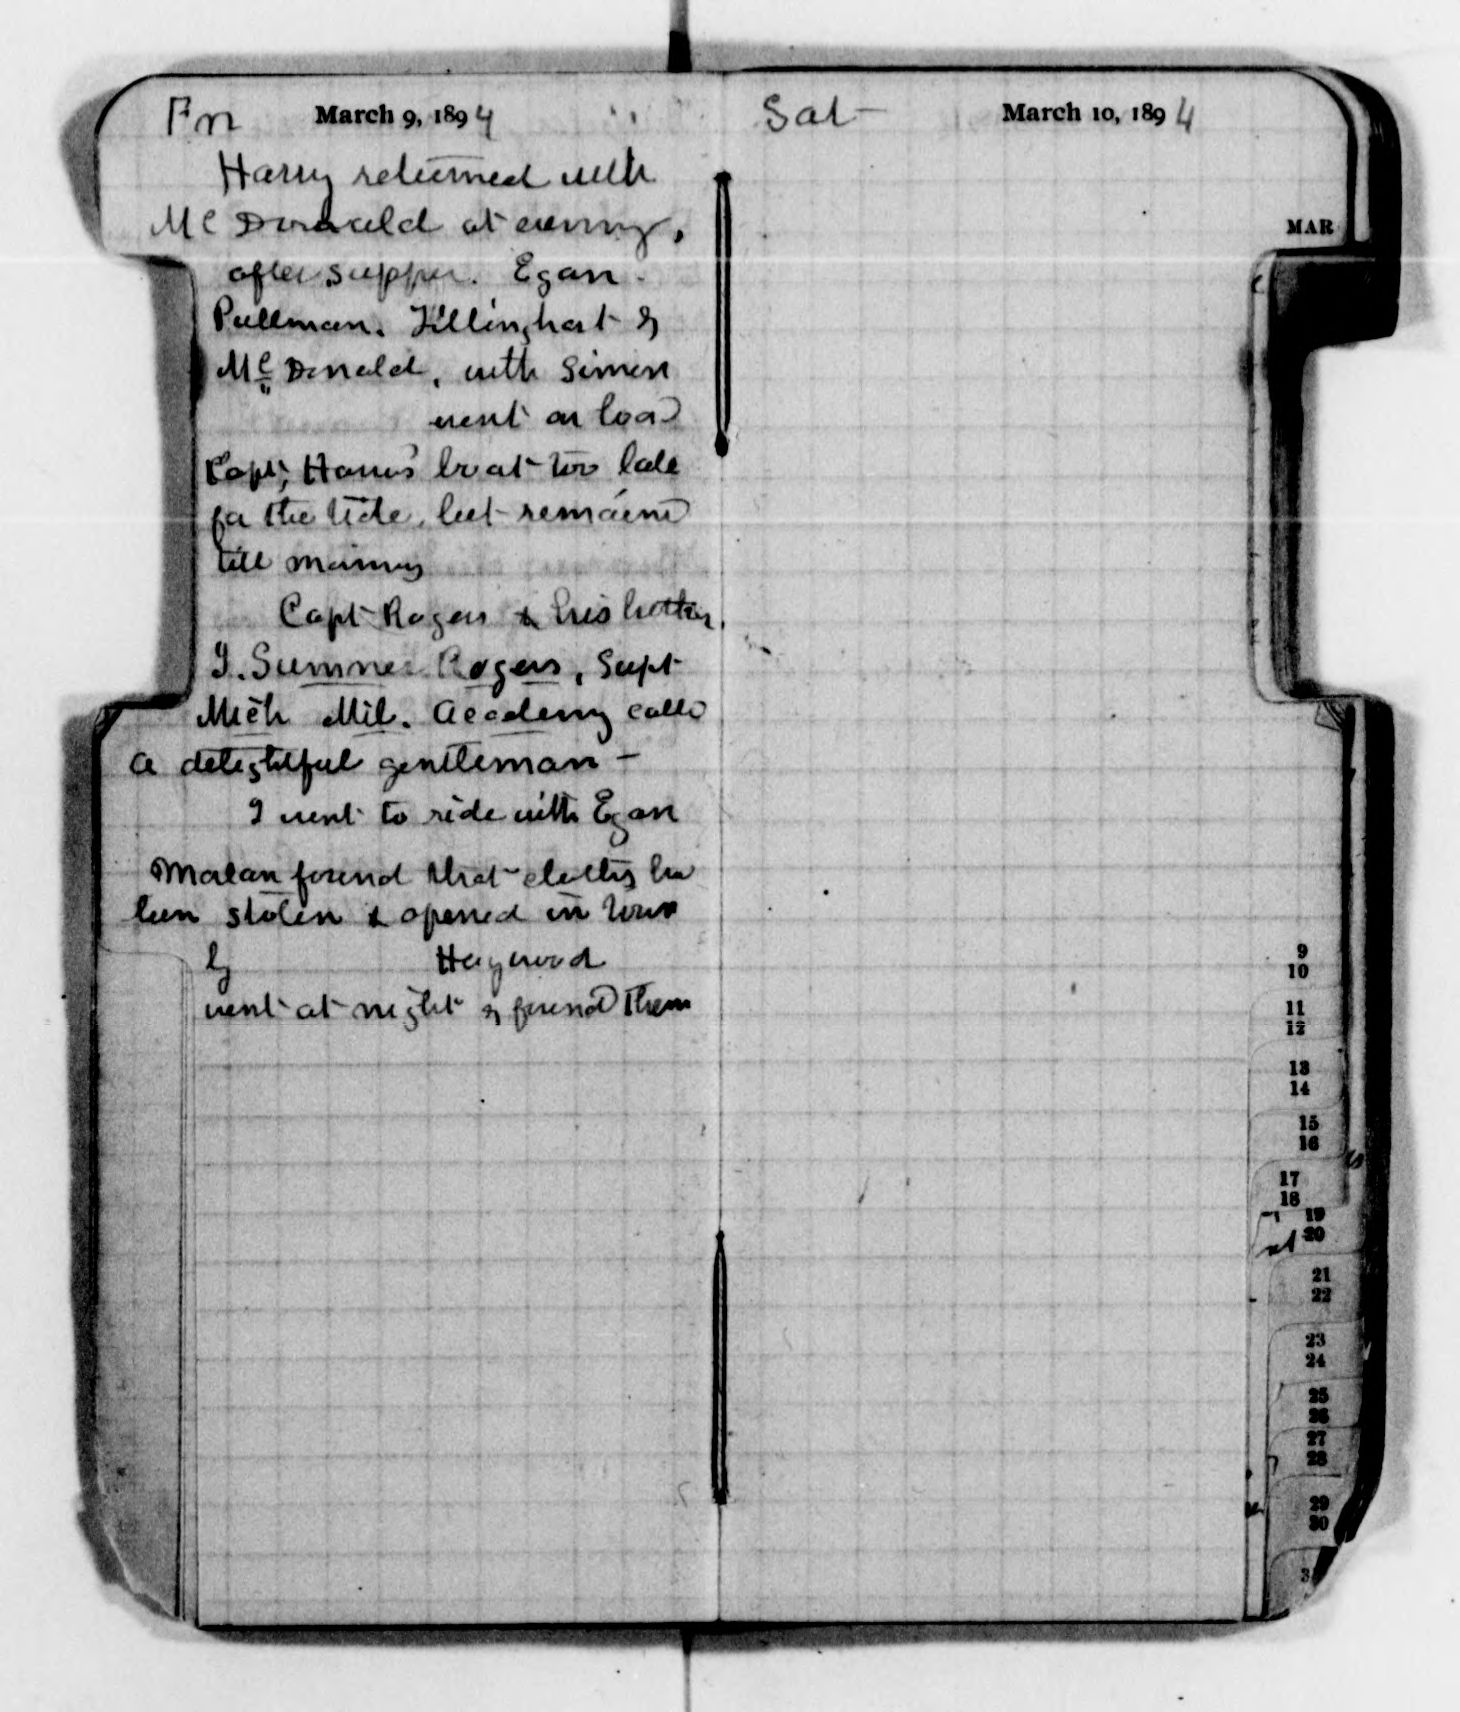 Fri March 9, 1894
Harry returned with
McDonald at evening,
after supper. Egan
Pullman. Tillinghast &
McDonald, with Simon
went on board
Capt. Harris' boat too late
for the tide, but remained
till morning
Capt Rogers & his brother,
J. Sumner Rogers, Supt
Mich Mil. Academy called
a delightful gentleman —
I went to ride with Egan
found that clothes had
been stolen & opened in
by Haywood
went at night & found them
Sat March 10, 1894
MAR
9
10
11
12
13
14
15
16
17
18
19
20
21
22
23
24
25
26
27
28
29
30
3